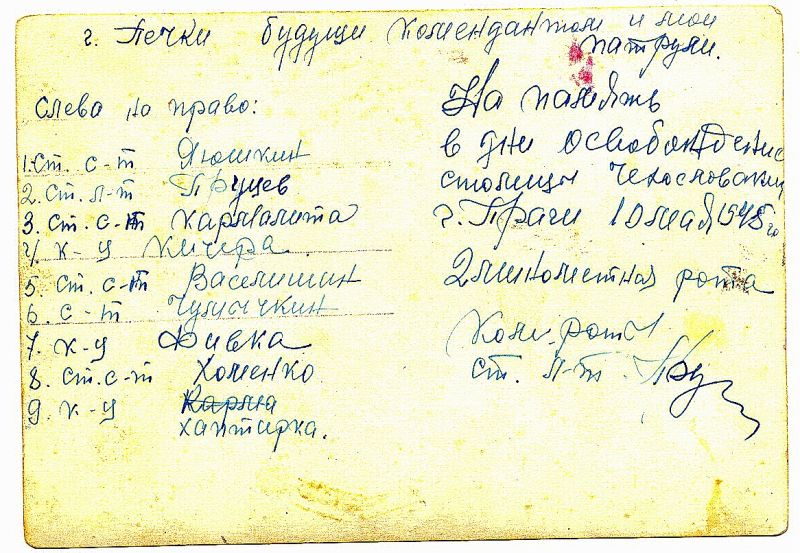 г. Печки будущи комендантом и мои
патрули.
Слева на право:
1. ст. с-т Яюшкин
2. ст. л-т Пруцев
3. ст. с-т Карявалита
4. к-у Кичера
5. ст. с-т Васелишин
6. с-т Чулычкин
7. к-у Фивка
8. ст. с-т Хоменко
9. к-у Каряа
хаптирка.
На память
в дни освобождения
столицы Чехословакии
г. Праги 10 мая 1945 г.
2 минометная рота
Ком. роты
ст. л-т Пру